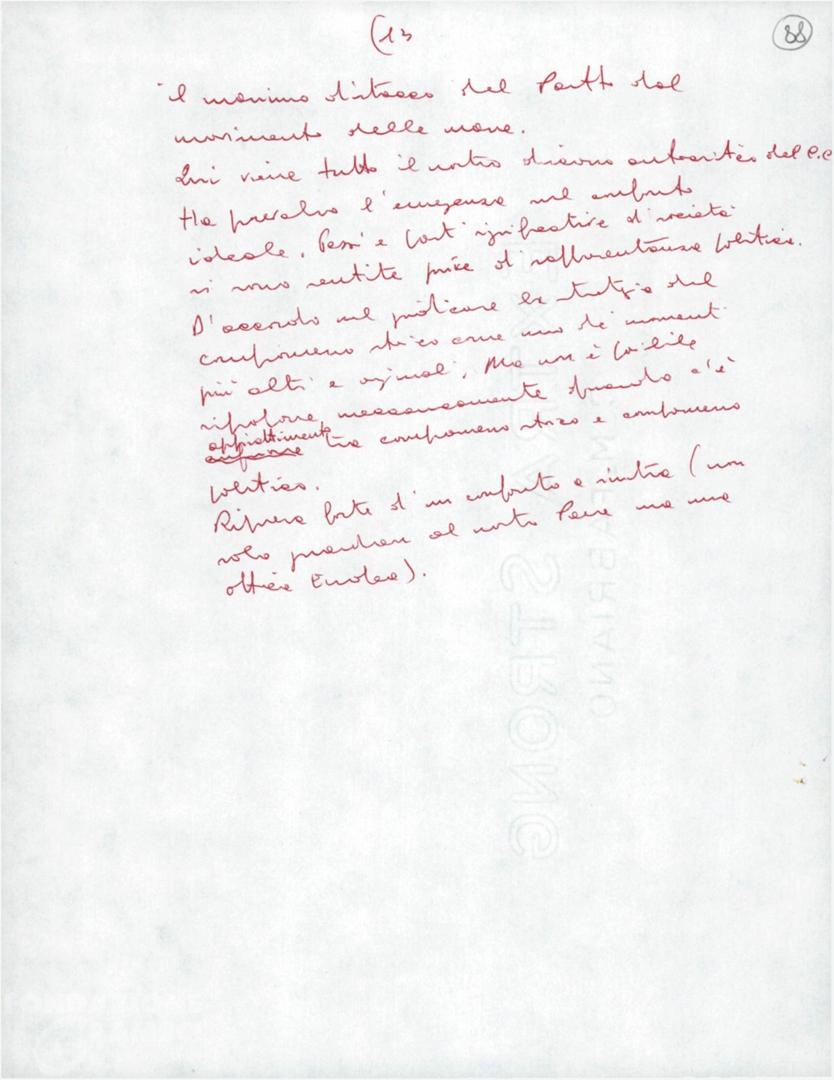 (13
88
il massimo distacco del Partito dal
movimento delle masse.
Qui viene tutto il nostro discorso autocritico del C.C
Ha prevalso l'emergenza sul confronto
ideale. Pezzi e parti significative di società
si sono sentite prive di rappresentanza politica.
D'accordo nel giudicare la strategia del
compromesso storico come uno dei momenti
più alti e originali. Ma non è possibile
riproporre meccanicamente quando c'è
appiattimento tra compromesso storico e compromesso
politico.
Ripresa forte di un confronto a sinistra (non
solo guardare al nostro Paese ma una
ottica Europea).
EXTRA STRONG
FABRIANO